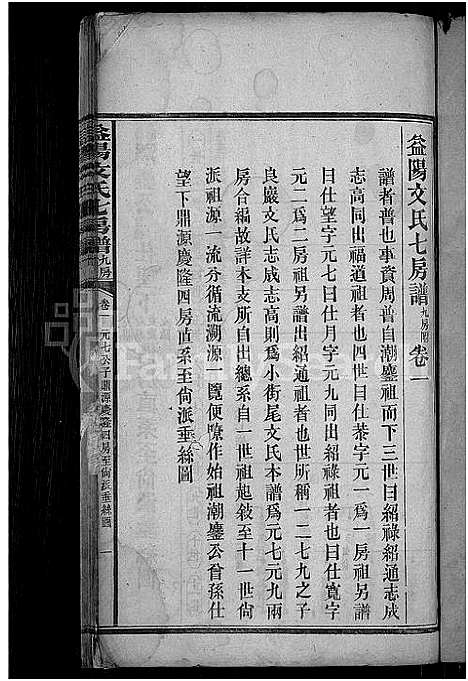 益陽文氏七房譜九房附卷一
譜者普也事資周普自潮鑒祖而下三世曰紹祿紹通志成
志高同出福道祖者也四世曰仕恭字元一爲一房祖另譜
曰仕望字元七曰仕月字元九同出紹祿祖者也曰仕寬字
元二爲二房另譜出紹通祖者也世所稱一二七九之子
良巖文氏志成志高則爲小街尾文氏本譜爲元七元九兩
房合編故詳本支出總系自一世祖起敘至十一世尙
派祖源一流分循流溯源一覽便暸作始祖潮鑒公曾孫仕
望下鼎源慶隆四房直系至尙派垂絲圖
益陽文氏七房譜九房
卷一
元七公子鼎源慶隆四房至尙派垂絲圖
一